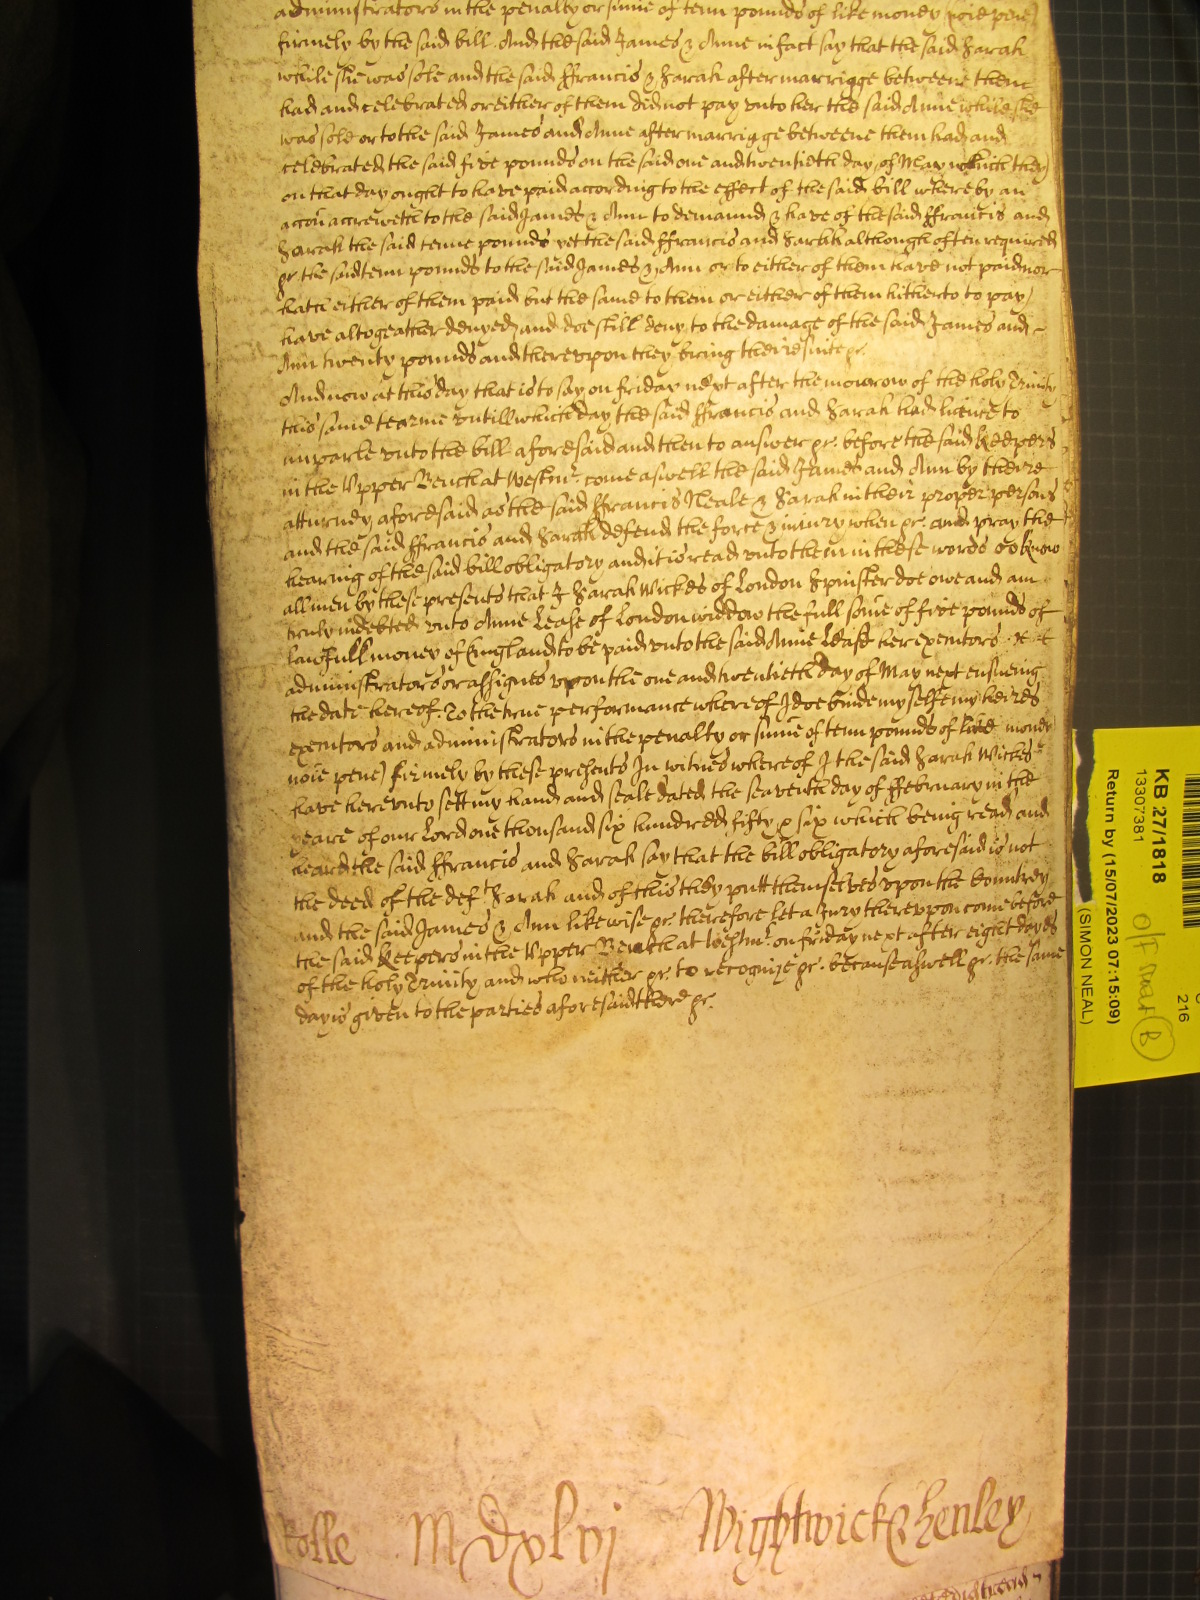 administrators in the penalty or sume of tenn pounds of like money noie pene)
firmely by the said bill. And the said James & Anne in fact say that the said Sarah
while she was sole and the said ffrancis & Sarah after marrigge betweene them
had and celebrated or either of them did not pay unto her the said Anne while she
was sole or to the said James and Anne after marrigge betweene them had and
celebrated the said five pounds on the said one and twentieth day of May which they
on that day ought to have paid according to the effect of the said bill whereby an
accon accreweth to the said James & Ann to demannd & have of the said ffrancis and
Sarah the said tenne pounds yet the said ffrancis and Sarah although often required
&c. the said tenn pounds to the said James & Ann or to either of them have not paid nor
hath either of them paid but the same to them or either of them hitherto to pay
have altogeather denyed and doe still deny to the damage of the said James and
Ann twenty pounds and thereupon they bring theire suite &c.
And now at this day that is to say on friday next after the morrow of the holy Trinity
this same tearme untill which day the said ffrancis and Sarah had licence to
imparle unto the bill aforesaid and then to answer &c. before the said Keepers
in the Upper Bench at Westmr. come aswell the said James and Ann by theire
atturney aforesaid as the said ffrancis Neale & Sarah in their proper persons
and the said ffrancis and Sarah defend the force & iniury when &c. and pray the
hearing of the said bill obligatory and it is read unto them in these words ss Know
all men by these presents that I Sarah Wickes of London Spinster doe owe and am
truly indebted unto Anne Lease of London widdow the full some of five pounds of
lawfull money of England to be paid unto the said Anne Lease her executors
administrators or assignes upon the one and twentieth day of May next ensueing
the date hereof. To the true performance whereof I doe binde my selfe my heires
executors and administrators in the penalty or sume of tenn pounds of like money
noie pene) firmely by these presents In witnes whereof I the said Sarah Wickes
have hereunto sett my hand and seale dated the seaventh day of ffebruary in the
yeare of our Lord one thousand six hundred fifty & six which being read and
heard the said ffrancis and Sarah say that the bill obligatory aforesaid is not
the deed of the deft Sarah and of this they putt themselves upon the Countrey
and the said James & Ann likewise &c. therefore let a Jury thereupon come before
the said Keepers in the Upper Bench at Westmr. on friday next after eight dayes
of the holy Trinity and who neither &c. to recognize &c. because aswell &c. the same
day is given to the parties aforesaid there &c.
Rolle M Dxlvj Wightwick & henley
KB 27/1818
13307381
Return by (15/07/2023 07:15:09)
(SIMON NEAL)
216
B